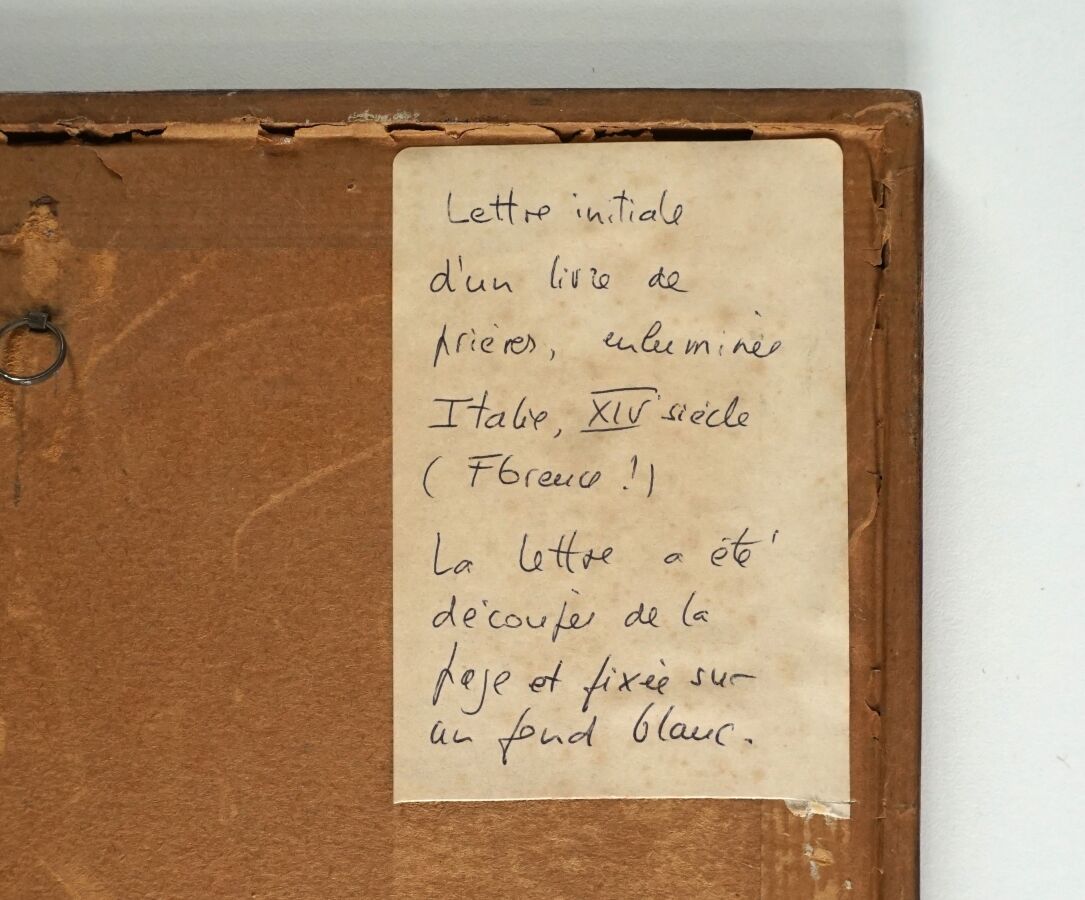 Lettre initiale
d'un livre de
prières, enluminée
Italie, XIV siècle
(Florence !)
La lettre a été
découpée de la
page et fixée sur
un fond blanc.